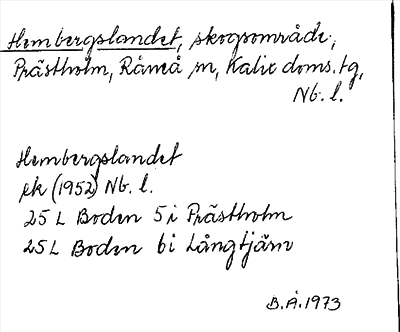 Hembergslandet, skogsområde,
Prästholm, Råneå sn, Kalix doms.tg,
Nb. l.
Hembergslandet
ek (1952) Nb. l.
25 L Boden 5 i Prästholm
25 L Boden 6 i Långtjärn
B.Å. 1973